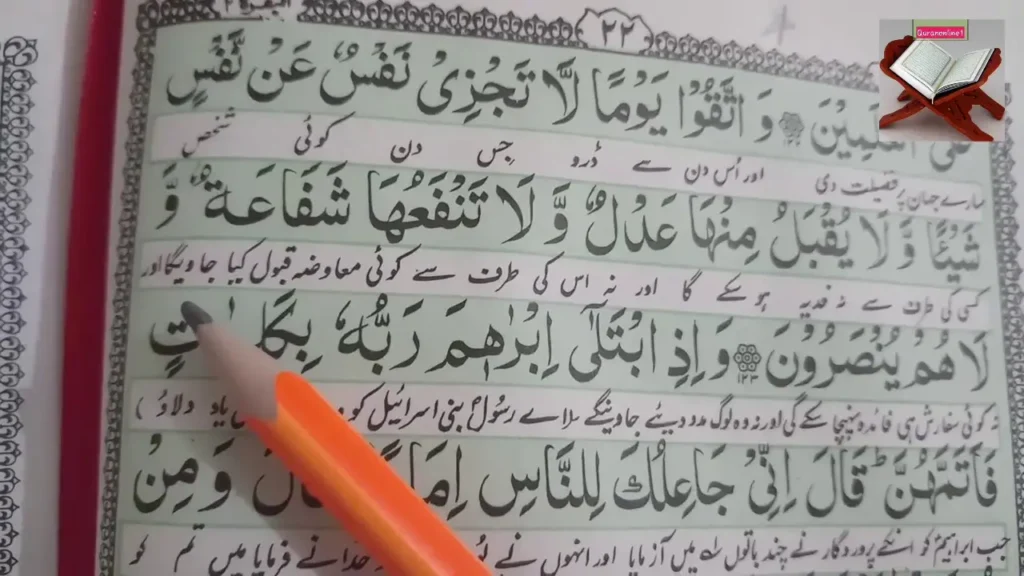 ٢٢
Quranonline1
الْعٰلَمِيْنَ وَ اتَّقُوْا يَوْمًا لَّا تَجْزِىْ نَفْسٌ عَنْ نَّفْسٍ
سارے جہان پر فضیلت دی اور اُس دن سے ڈرو جس دن کوئی شخص
شَيْـًٔا وَّ لَا يُقْبَلُ مِنْهَا عَدْلٌ وَّ لَا تَنْفَعُهَا شَفَاعَةٌ وَّ
کسی کی طرف سے نہ فدیہ ہو سکے گا اور نہ اس کی طرف سے کوئی معاوضہ قبول کیا جاویگا اور
لَا هُمْ يُنْصَرُوْنَ ١٢٣ وَ اِذِ ابْتَلٰٓى اِبْرٰهٖمَ رَبُّهٗ
نہ کوئی سفارش ہی فائدہ پہنچا سکے گی اور نہ وہ لوگ مدد دیئے جاوینگے بنی اسرائیل کو یاد دلاؤ )
فَاَتَمَّهُنَّ ؕ قَالَ اِنِّىْ جَاعِلُكَ لِلنَّاسِ وَ مِنْ
جب ابراہیمؑ کو انکے پروردگار نے چند باتوں میں آزمایا اور انہوں نے خدا نے فرمایا میں تم کو